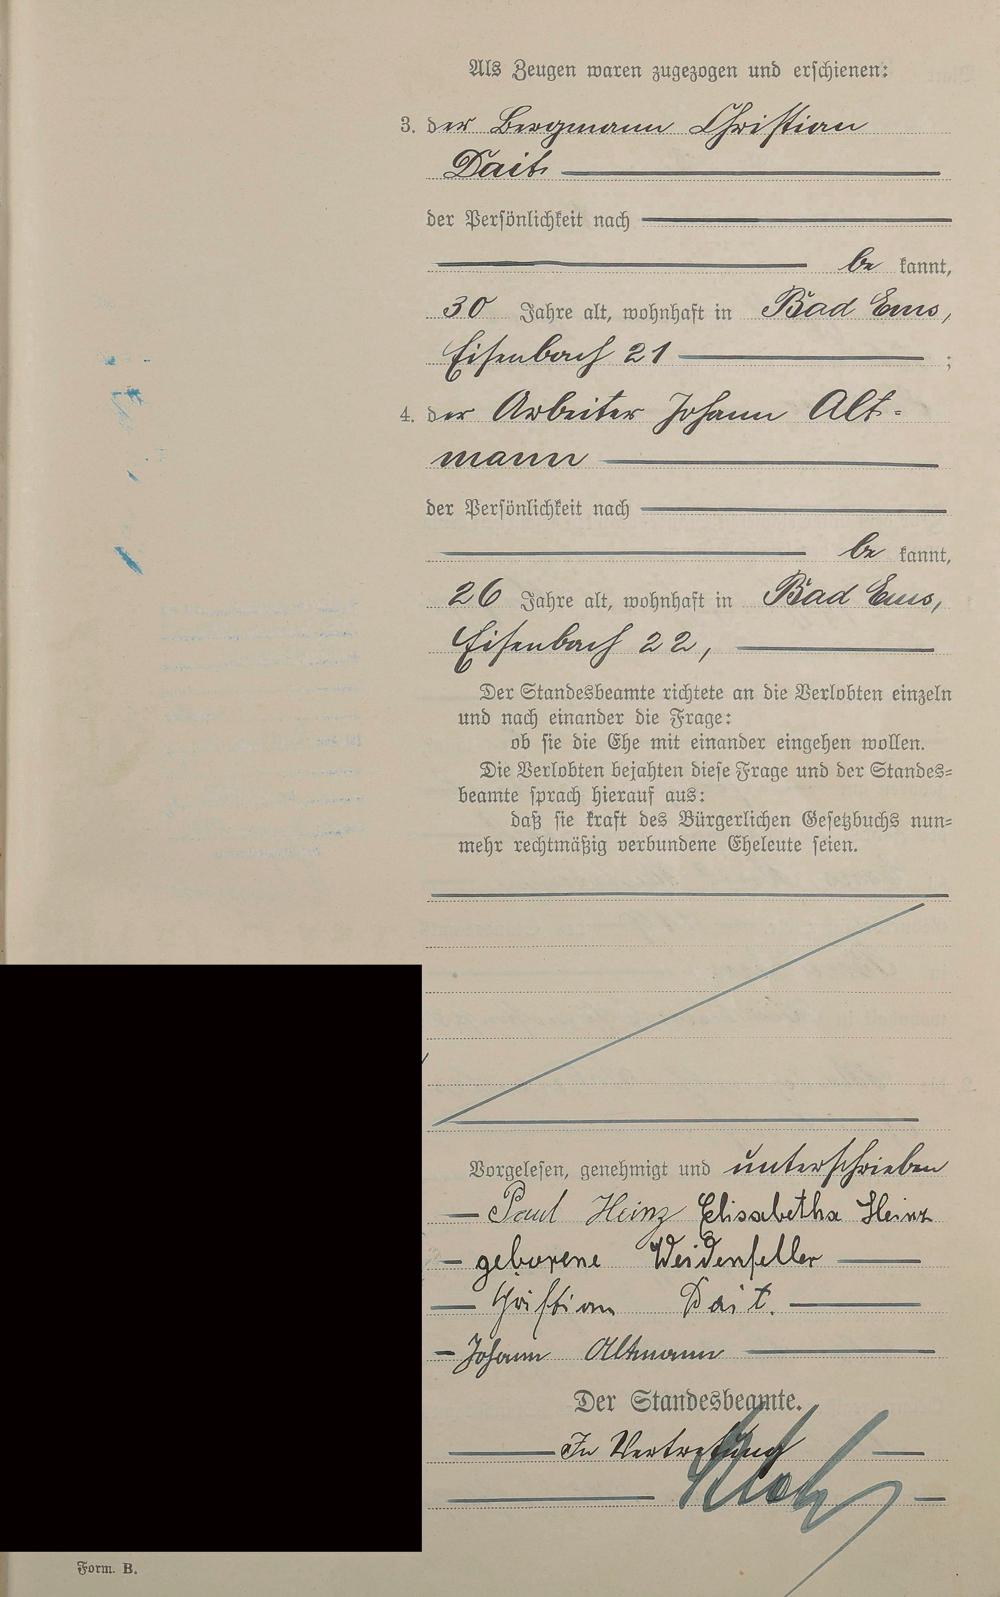 Als Zeugen waren zugezogen und erschienen:
3. der Bergmann Christian
Dait
der Persönlichkeit nach
be kannt,
30 Jahre alt, wohnhaft in Bad Ems,
Eisenbach 21 ;
4. der Arbeiter Johann Alt-
mann
der Persönlichkeit nach
be kannt,
26 Jahre alt, wohnhaft in Bad Ems,
Eisenbach 22,
Der Standesbeamte richtete an die Verlobten einzeln
und nach einander die Frage:
ob sie die Ehe mit einander eingehen wollen.
Die Verlobten bejahten diese Frage und der Standes-
beamte sprach hierauf aus:
daß sie kraft des Bürgerlichen Gesetzbuchs nun-
mehr rechtmäßig verbundene Eheleute seien.
Vorgelesen, genehmigt und unterschrieben
Paul Heinz Elisabetha Heinz
geborene Weidenfeller
Christian Dait.
Johann Altmann
Der Standesbeamte.
In Vertretung
Form. B.